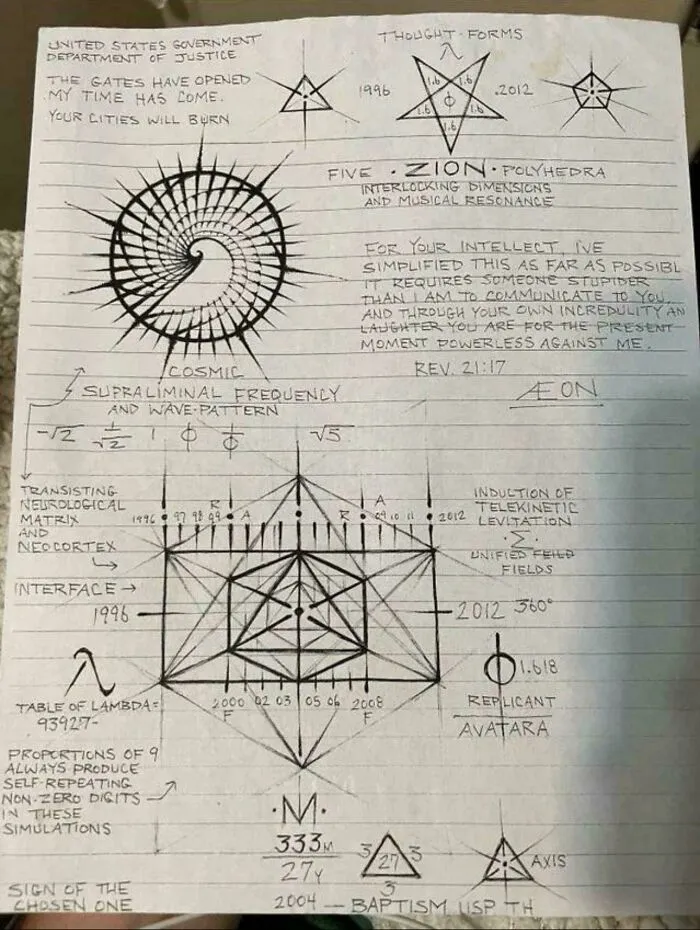 UNITED STATES GOVERNMENT
DEPARTMENT OF JUSTICE
THE GATES HAVE OPENED
MY TIME HAS COME.
YOUR CITIES WILL BURN
THOUGHT-FORMS
λ
1996
1.6 1.6
ϕ
1.6 1.6
1.6
.2012
FIVE · ZION · POLYHEDRA
INTERLOCKING DIMENSIONS
AND MUSICAL RESONANCE
FOR YOUR INTELLECT, I'VE
SIMPLIFIED THIS AS FAR AS POSSIBL
IT REQUIRES SOMEONE STUPIDER
THAN I AM TO COMMUNICATE TO YOU
AND THROUGH YOUR OWN INCREDULITY AN
LAUGHTER YOU ARE FOR THE PRESENT
MOMENT POWERLESS AGAINST ME.
REV. 21:17
ÆON
COSMIC
SUPRALIMINAL FREQUENCY
AND WAVE-PATTERN
-√2 1/√2 1 ϕ 1/ϕ √5
TRANSISTING
NEUROLOGICAL
MATRIX
AND
NEOCORTEX
INTERFACE →
R A
1996 97 98 99 A R 09 10 11 2012
INDUCTION OF
TELEKINETIC
LEVITATION
·Σ·
UNIFIED FEILD
FIELDS
1996
2012 360°
λ
TABLE OF LAMBDA=
93927-
2000 02 03 05 06 2008
F F
ϕ 1.618
REPLICANT
AVATARA
PROPORTIONS OF 9
ALWAYS PRODUCE
SELF-REPEATING
NON-ZERO DIGITS
IN THESE
SIMULATIONS
·M·
333M
27Y
3 27 3
3
AXIS
SIGN OF THE
CHOSEN ONE
2004 — BAPTISM USP TH